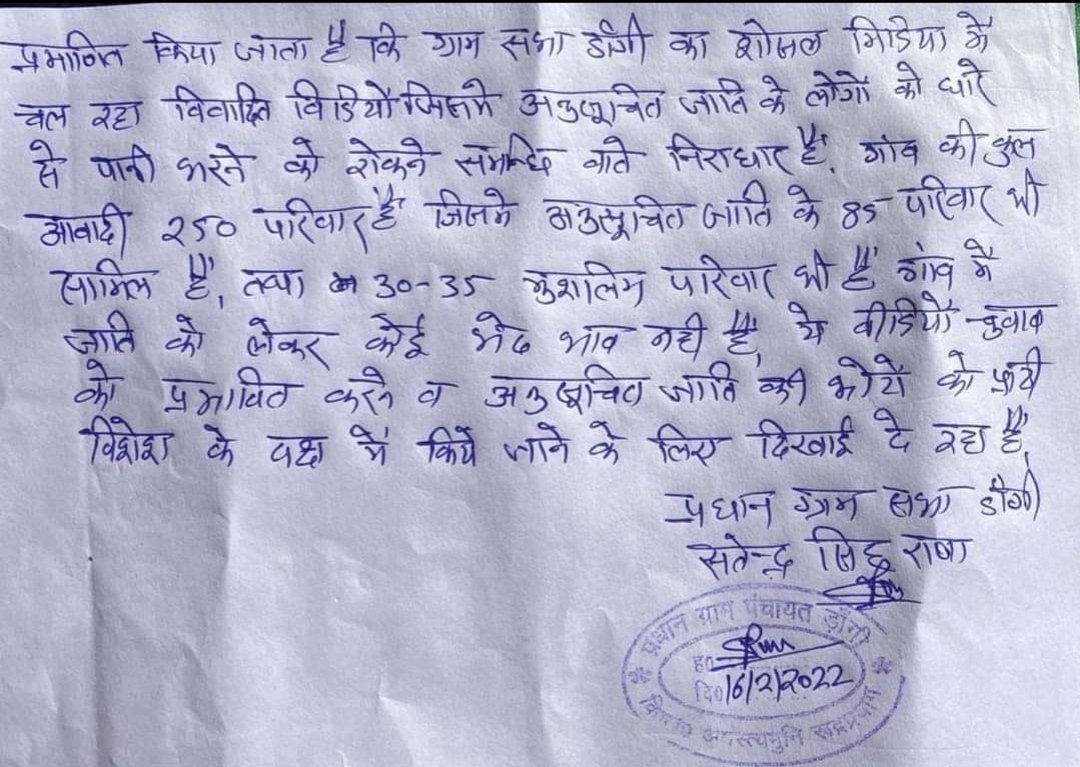 प्रमाणित किया जाता है कि ग्राम सभा डाँगी का शोसल मिडिया में
चल रहा विवादित विडियो जिसमे अनुसूचित जाति के लोगों को धारे
से पानी भरने को रोकने सम्बन्धि बाते निराधार है, गांव की कुल
आबादी 250 परिवार है जिसमे अनुसूचित जाति के 85 परिवार भी
सामिल हैं, तथा 30-35 मुशलिम परिवार भी हैं गांव में
जाति को लेकर कोई भेद भाव नही है, ये वीडियो चुनाव
को प्रभावित करने व अनुसूचित जाति की वोटों को पार्टी
विशेश के पक्ष में किये जाने के लिए दिखाई दे रहा है,
प्रधान ग्राम सभा डाँगी
सतेन्द्र सिंह राणा
प्रधान ग्राम पंचायत डाँगी
ह0
दि0 16/2/2022
अगस्त्यमुनि रूद्रप्रयाग